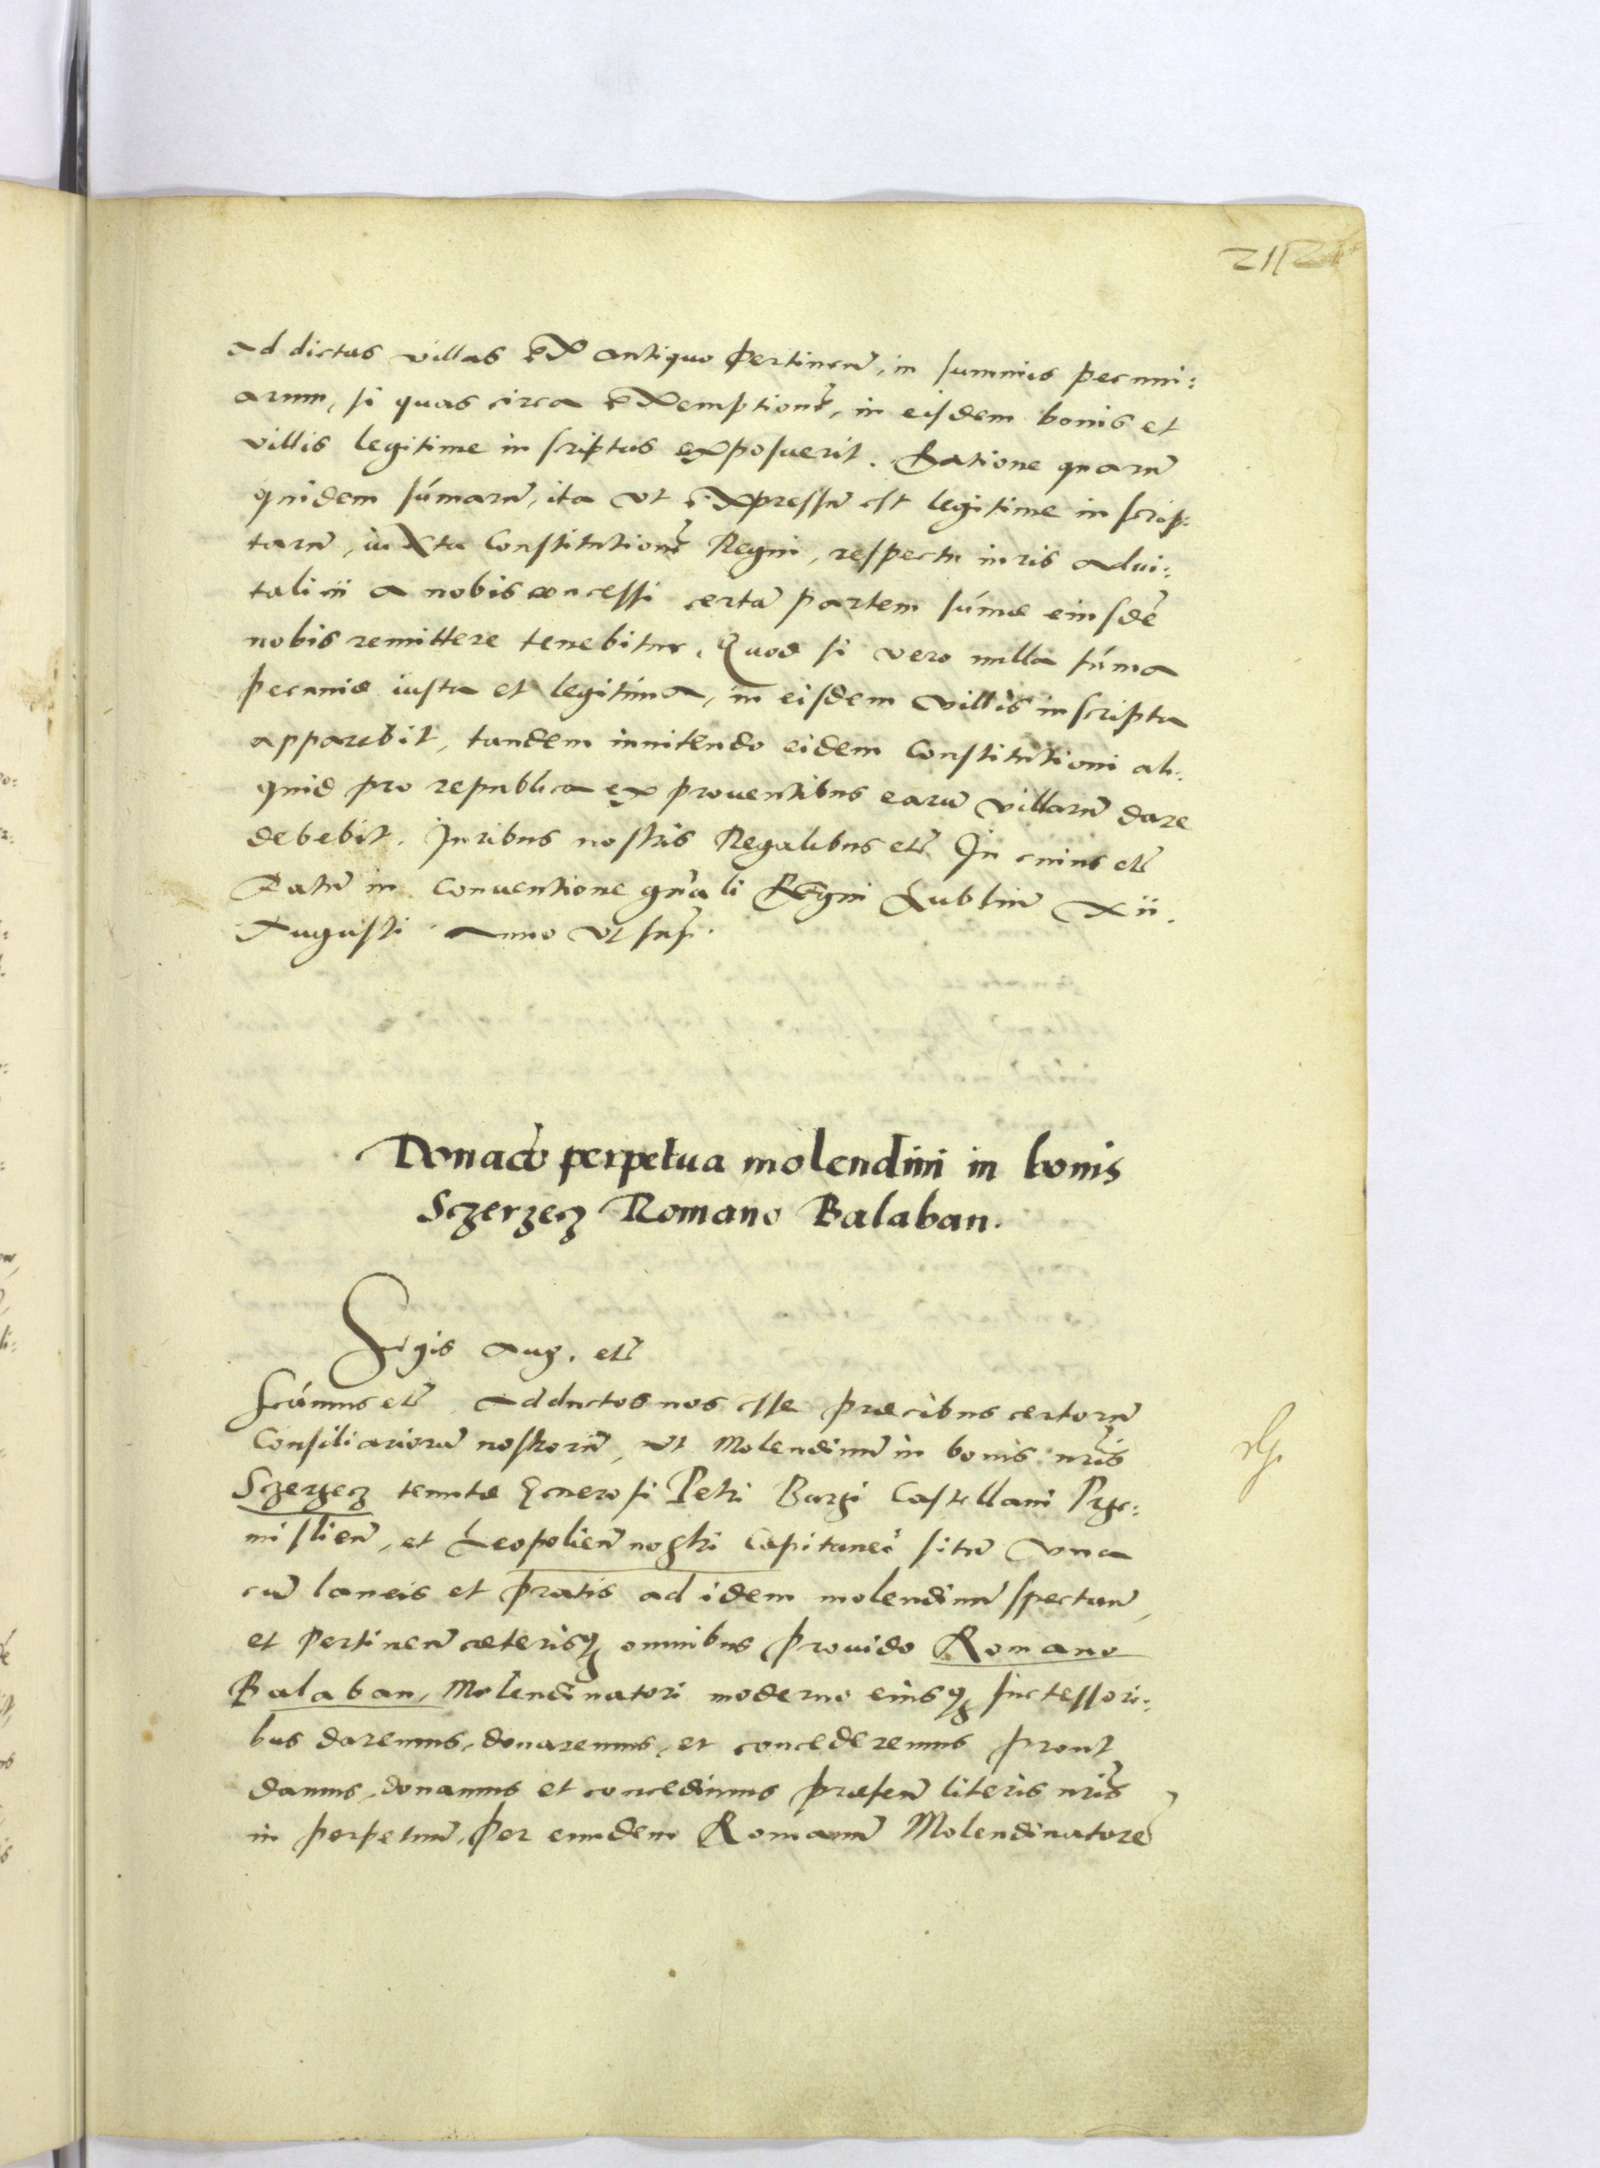 ad dictas villas ex antiquo pertineñ, in summis pecuni:
arum, si quas circa exemptionẽ, in eisdem bonis et
villis legitime inscriptas exposuerit. Ratione quarũ
quidem sum̃arũ, ita vt expressũ est legitime inscrip:
tarũ, iuxta Constitutionẽ Regni, respectu iuris advi:
talitii a nobis concessi certã partem sum̃æ eiusdẽ
nobis remittere tenebitur. Quod si vero nulla sum̃a
pecuniæ iusta et legitima, in eisdem villis inscripta
apparebit, tandem innitendo eidem Constitutioni ali:
quid pro republica ex prouentibus earũ villarũ dare
debebit. Iuribus nostris Regalibus etc̃ In cuius etc̃
Datũ in Conuentione gñali Regni Lubliñ xii.
Augusti Anno vt supͬ.
Donac̃io perpetua molendini in bonis
Sczerzecz Romano Balaban.
Sigis Aug. etc̃
Scim̃us etc̃ Adductos nos esse præcibus certorũ
Consiliariorũ nostrorũ, vt Molendinũ in bonis nr̃is
Sczerzecz tenutæ Generosi Petri Barzi Castellani Prze:
mislieñ, et Leopolieñ nostri Capitanei sitũ vna
cũ laneis et pratis ad idem molendinũ spectañ,
et pertineñ cæterisq omnibus prouido Romano
Balaban, Molendinatori moderno eiusq successori:
bus daremus, donaremus, et concederemus prout
damus, donamus et concedimus præseñ literis nr̃is
in perpetuũ, Per eundem Romanũ Molendinatorẽ